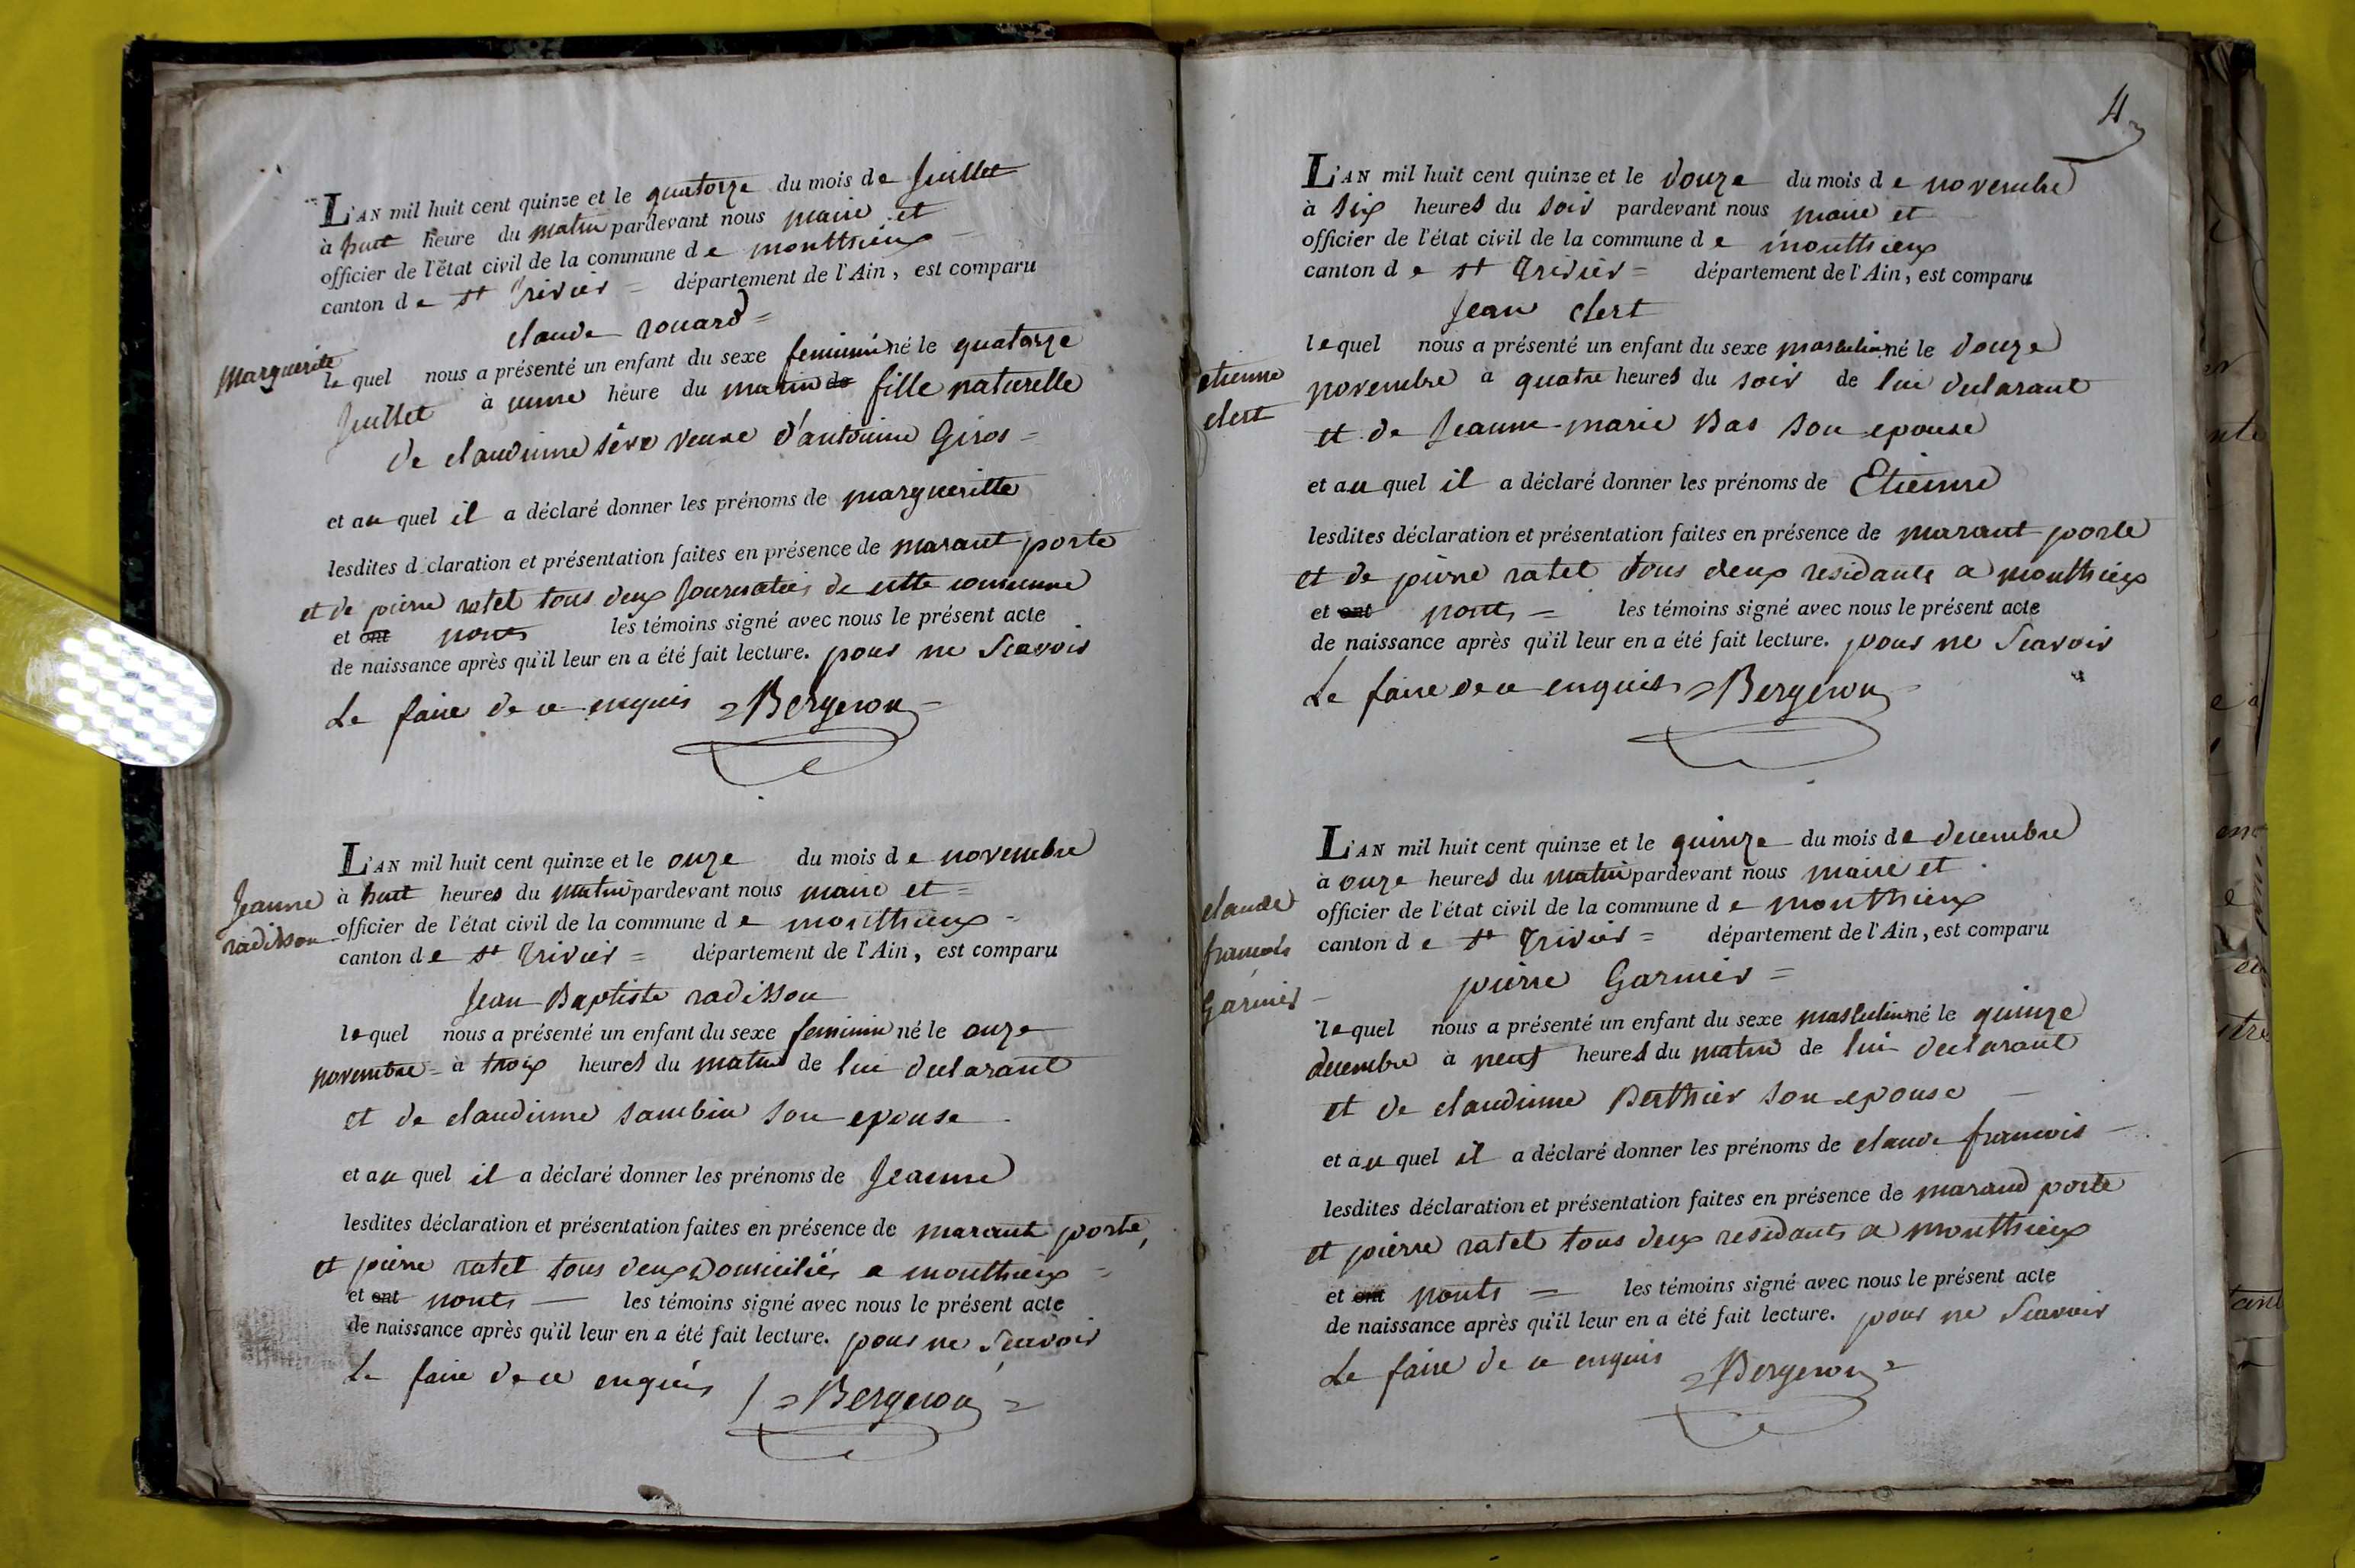 L'AN mil huit cent quinze et le quatorze du mois de Juillet
à huit heure du matin pardevant nous maire et
officier de l'état civil de la commune de monthieux
canton de st Trivier = département de l'Ain, est comparu
claude rouard =
Marguerite
lequel nous a présenté un enfant du sexe feminin né le quatorze
Juillet à une heure du matin de fille naturelle
de claudinne séve veuve d'antoinne Giros =
et au quel il a déclaré donner les prénoms de margueritte
lesdites d claration et présentation faites en présence de marant porte
et de pierre ratet tous deux Journaliers de cette commune
et ont nonts les témoins signé avec nous le présent acte
de naissance après qu'il leur en a été fait lecture. pour ne Scavoir
Le faire de ce enquis = Bergeron =
L'AN mil huit cent quinze et le onze du mois de novembre
Jeanne
radisson
à huit heures du matin pardevant nous maire et =
officier de l'état civil de la commune de monthieux =
canton de st Trivier = département de l'Ain, est comparu
Jean Baptiste radisson
lequel nous a présenté un enfant du sexe feminin né le onze
novembre = à troix heures du matin de lui declarant
et de claudinne sambin son epouse
et au quel il a déclaré donner les prénoms de Jeanne
lesdites déclaration et présentation faites en présence de marant porte,
et pierre ratet tous deux Domiciliés a monthieux =
et ont nonts — les témoins signé avec nous le présent acte
de naissance après qu'il leur en a été fait lecture. pour ne Scavoir
Le faire de ce enquis = Bergeron =
4
L'AN mil huit cent quinze et le douze du mois de novembre
à six heures du soir pardevant nous maire et
officier de l'état civil de la commune de monthieux
canton de st Trivier = département de l'Ain, est comparu
Jean clert
lequel nous a présenté un enfant du sexe masculin né le douze
etienne
clert
novembre à quatre heures du soir de lui declarant
et de Jeanne-marie Bas son epouse
et au quel il a déclaré donner les prénoms de Etienne
lesdites déclaration et présentation faites en présence de marant porte
et de pierre ratet tous deux residants a monthieux
et ont nonts = les témoins signé avec nous le présent acte
de naissance après qu'il leur en a été fait lecture. pour ne Scavoir
Le faire de ce enquis = Bergeron
L'AN mil huit cent quinze et le quinze du mois de decembre
à onze heures du matin pardevant nous maire et
claude
francois
Garnier
officier de l'état civil de la commune de monthieux
canton de st Trivier = département de l'Ain, est comparu
pierre Garnier =
lequel nous a présenté un enfant du sexe masculin né le quinze
decembre à neuf heures du matin de lui declarant
et de claudinne Berthier son epouse
et au quel il a déclaré donner les prénoms de claude francois
lesdites déclaration et présentation faites en présence de maraud porte
et pierre ratet tous deux residants a monthieux
et ont nonts = les témoins signé avec nous le présent acte
de naissance après qu'il leur en a été fait lecture. pour ne Scavoir
Le faire de ce enquis = Bergeron =